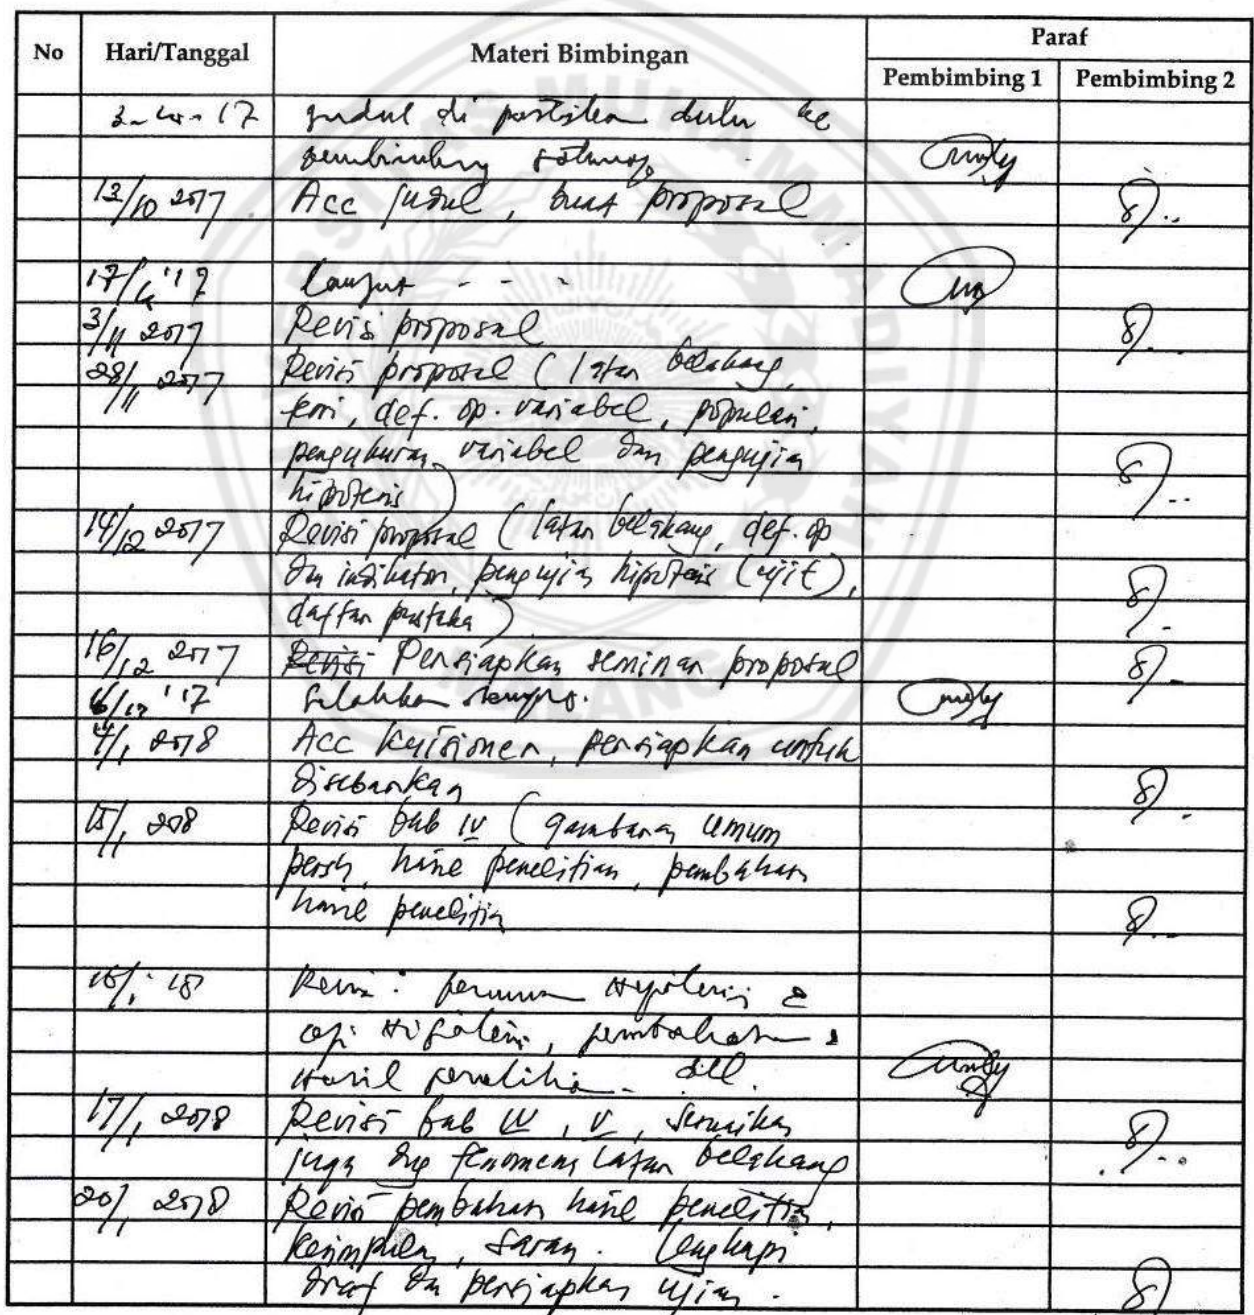 No Hari/Tanggal Materi Bimbingan Paraf
Pembimbing 1 Pembimbing 2
judul di pastikan dulu ke
pembimbing
13/10 2017 Acc judul, buat proposal
lanjut - - -
3/11 2017 Revisi proposal
28/11 2017 Revisi proposal (latar belakang,
def. op. variabel, populasi,
pengukuran variabel dan pengujian
hipotesis)
14/12 2017 Revisi proposal (latar belakang, def. op
dan indikator, pengujian hipotesis (uji t),
daftar pustaka)
16/12 2017 Revisi Persiapkan seminar proposal
Silahkan sempro.
4/1 2018 Acc kuisioner, persiapkan untuk
disebarkan
15/1 2018 Revisi bab IV (gambaran umum
persh, hasil penelitian, pembahasan
hasil penelitian
Revisi: Hypotesis &
uji Hipotesis, pembahasan
Hasil penelitian dll.
17/1 2018 Revisi bab IV, V, sesuaikan
juga dng fenomena latar belakang
20/1 2018 Revisi pembahasan hasil penelitian,
kesimpulan, saran. Lengkapi
draf dan persiapkan ujian.
MUHAMMADIYAH
MALANG